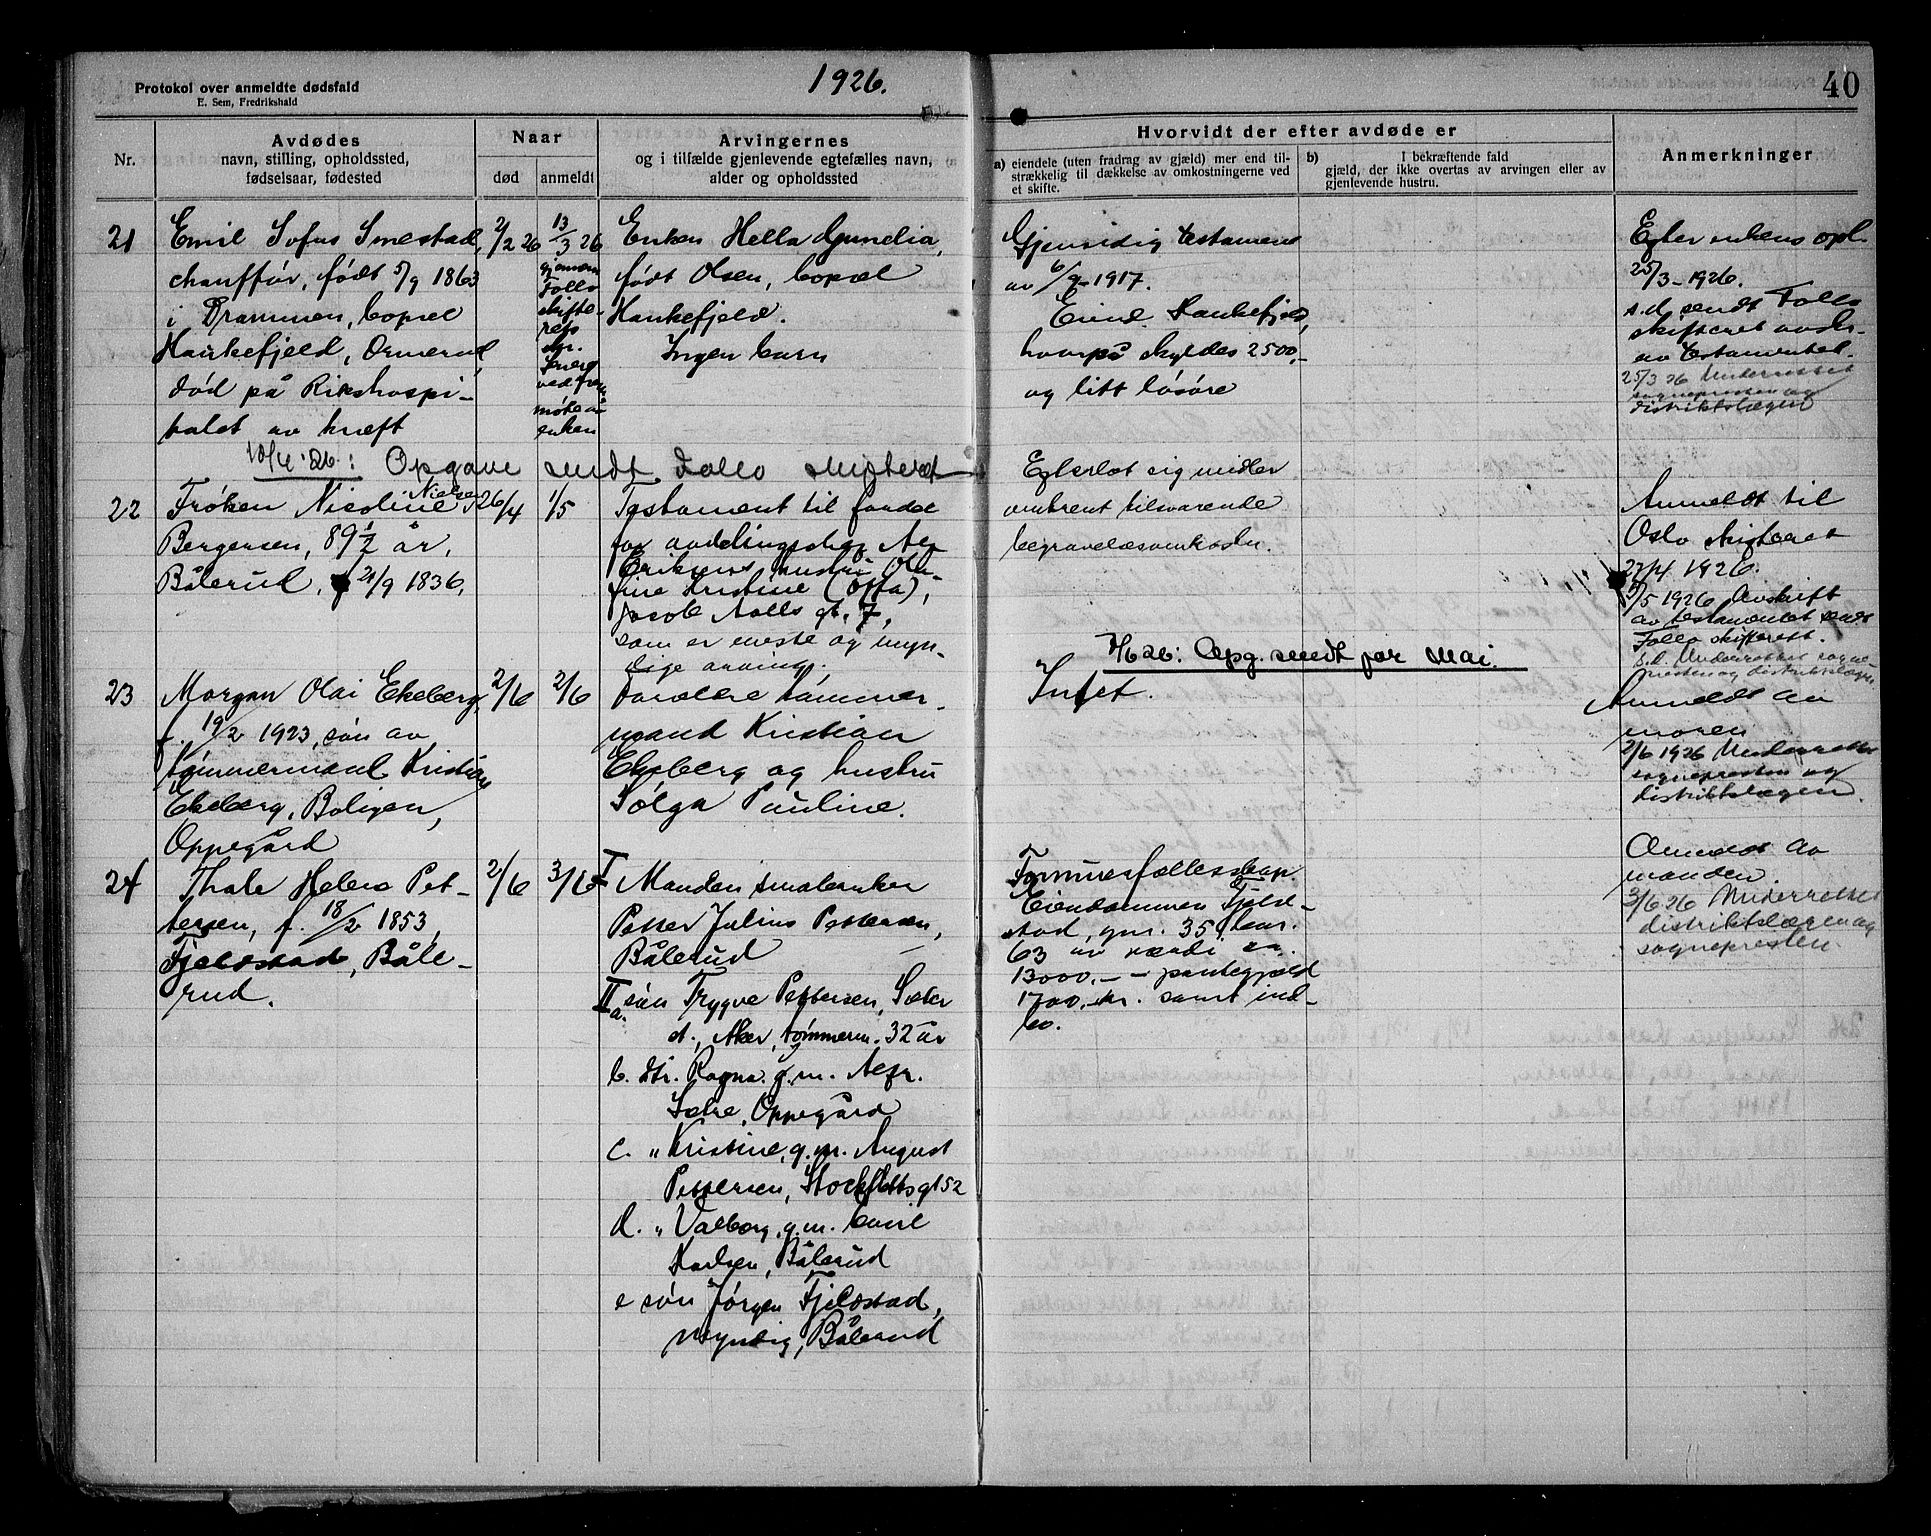 Protokol over anmeldte dødsfald
E. Sem, Fredrikshald
1926.
40
Nr.
Avdødes
navn, stilling, opholdssted,
fødselsaar, fødested
Naar
død
anmeldt
Arvingernes
og i tilfælde gjenlevende egtefælles navn,
alder og opholdssted
Hvorvidt der efter avdøde er
a) eiendele (uten fradrag av gjæld) mer end til-
strækkelig til dækkelse av omkostningerne ved
et skifte.
b) I bekræftende fald
gjæld, der ikke overtas av arvingen eller av
gjenlevende hustru.
Anmerkninger
21
Emil Sofus Smestad,
chauffør, født 5/9 1863
i Drammen, bopæl
Haukefjeld, Ormerud,
død på Rikshospi-
talet av kræft
2/2 26
13/3 26
gjennem
Follo
skifte-
ret
ved frem-
møte av
enken
Enken Hella Gunelia,
født Olsen, bopæl
Haukefjeld.
Ingen barn
Gjensidig testament
av 6/9-1917.
Eiend. Haukefjeld,
hvorpå skyldes 2500,-
og litt løsøre
Efter enkens opl.
25/3-1926.
s.d. sendt Follo
skifteret avskr.
av testamentet.
25/3 26 Underrettet
sognepresten og
distriktslægen
10/4 '26: Opgave sendt Follo skifteret
22
Frøken Nicoline Nielsen
Bergersen, 89 1/2 år,
Bålerud, f 21/9 1836,
26/4
1/5
Testament til fordel
for avdelingschef Alf
Eriksens hustru Ole-
fine Kristine (Offa),
Jacob Aalls gt. 7,
som er eneste og myn-
dige arving.
Efterlot sig midler
omtrent tilsvarende
begravelsesomkostn.
Anmeldt til
Oslo skifteret
27/4 1926.
1/5 1926 Avskrift
av testamentet sendt
Follo skifterett.
s.d. Underrettet sogne-
presten og distriktslægen
1/6 26: Opg. sendt for Mai.
23
Morgan Olai Ekeberg,
f. 19/2 1923, søn av
tømmermand Kristian
Ekeberg, Boligen,
Oppegård
2/6
2/6
Forældre tømmer-
mand Kristian
Ekeberg og hustru
Solga Pauline.
Intet.
Anmeldt av
moren
2/6 1926 Underrettet
sognepresten og
distriktslægen.
24
Thale Helene Pet-
tersen, f. 18/2 1853,
Fjeldstad, Båle-
rud.
2/6
3/6
I Manden småbruker
Petter Julius Pettersen,
Bålerud
II a. søn Trygve Pettersen, Sæter
st., Aker, tømmerm. 32 år
b. dtr. Ragna g.m. Alfr.
Sætre, Oppegård
c. „ Kristine, g.m. August
Pettersen, Stockfletts gt 52
d. „ Valborg, g.m. Emil
Karlsen, Bålerud
e søn Jørgen Fjeldstad,
myndig, Bålerud
Formuesfællesskap.
Eiendommen Fjeld-
stad, gnr. 35, bnr.
63 av værdi ca.
13000.- - pantegjæld
1700,- kr. samt ind-
bo.
Anmeldt av
manden.
3/6 26 Underrettet
distriktslægen og
sognepresten.